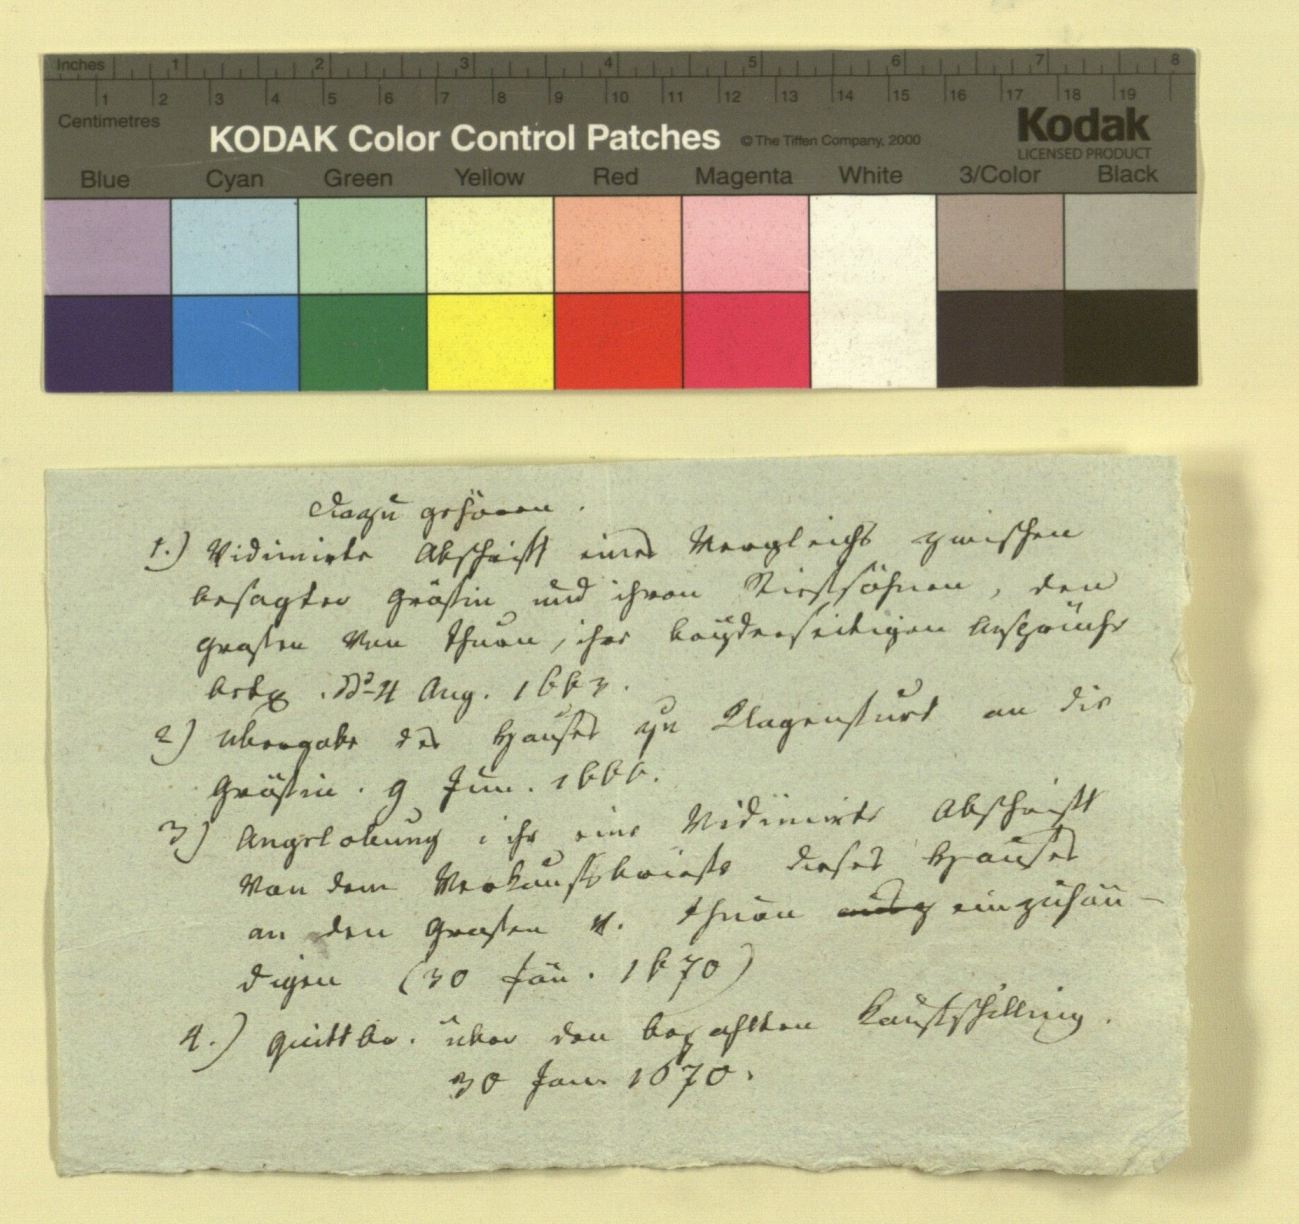 Inches 1 2 3 4 5 6 7 8
1 2 3 4 5 6 7 8 9 10 11 12 13 14 15 16 17 18 19
Centimetres
KODAK Color Control Patches © The Tiffen Company, 2000 Kodak
LICENSED PRODUCT
Blue Cyan Green Yellow Red Magenta White 3/Color Black
Dazu gehören.
1.) Vidimirte Abschrift eines Vergleichs zwischen
besagter Gräfin und ihren Stiefsöhnen, den
Grafen von Thurn, ihre beyderseitigen Ansprüche
betr. 4 Aug. 1663.
2) Übergabe des Hauses zu Klagenfurt an die
Gräfin. 9 Jun. 1666.
3) Angelobung ihr eine Vidimirte Abschrift
von dem Verkaufsbriefe dieses Hauses
an den Grafen v. Thurn einzuhän-
digen (30 Jän. 1670)
4.) Quittbr. über den bezahlten Kaufschilling.
30 Jan. 1670.